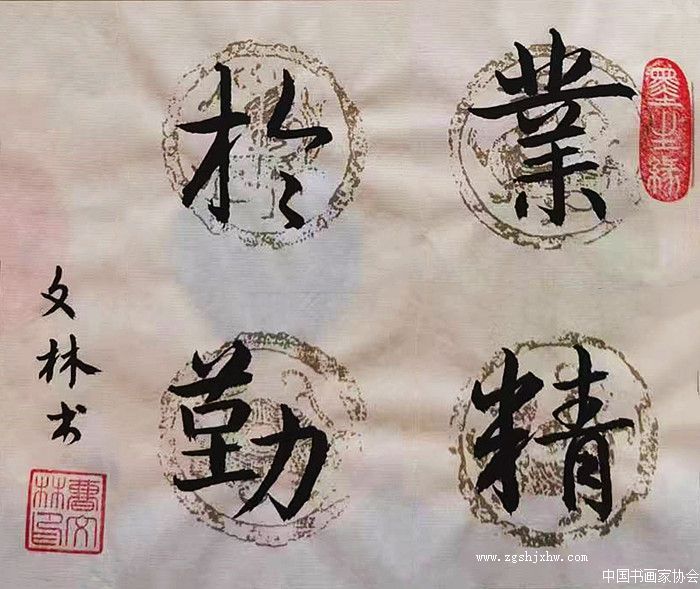 業精
於勤
文林书
墨生缘
曹文林印
www.zgshjxhw.com
中国书画家协会